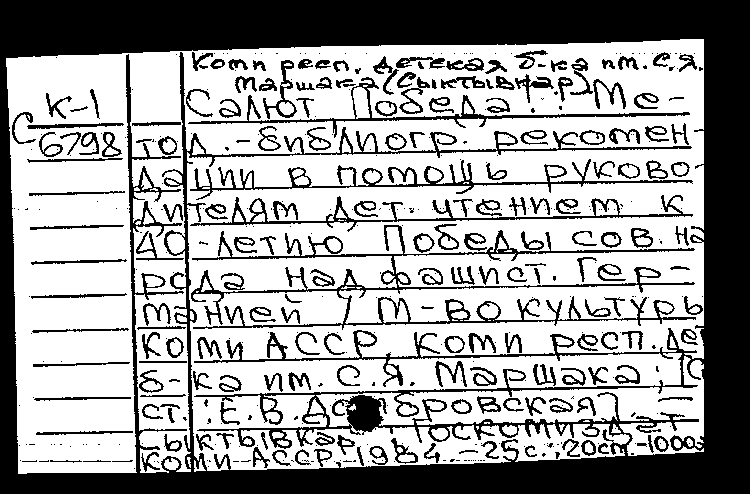 Коми респ. детская б-ка им. С.Я.
Маршака (Сыктывкар)
К-1
С
6798
Салют, Победа! : Ме-
тод.-библиогр. рекомен-
дации в помощь руково-
дителям дет. чтением к
40-летию Победы сов. на
рода над фашист. Гер-
манией / М-во культуры
Коми АССР, Коми респ. дет
б-ка им. С.Я. Маршака; [С
ст.: Е.В. До бровская] —
Сыктывкар : Госкомиздат
Коми АССР, 1984. -25 с.; 20 см. -1000э